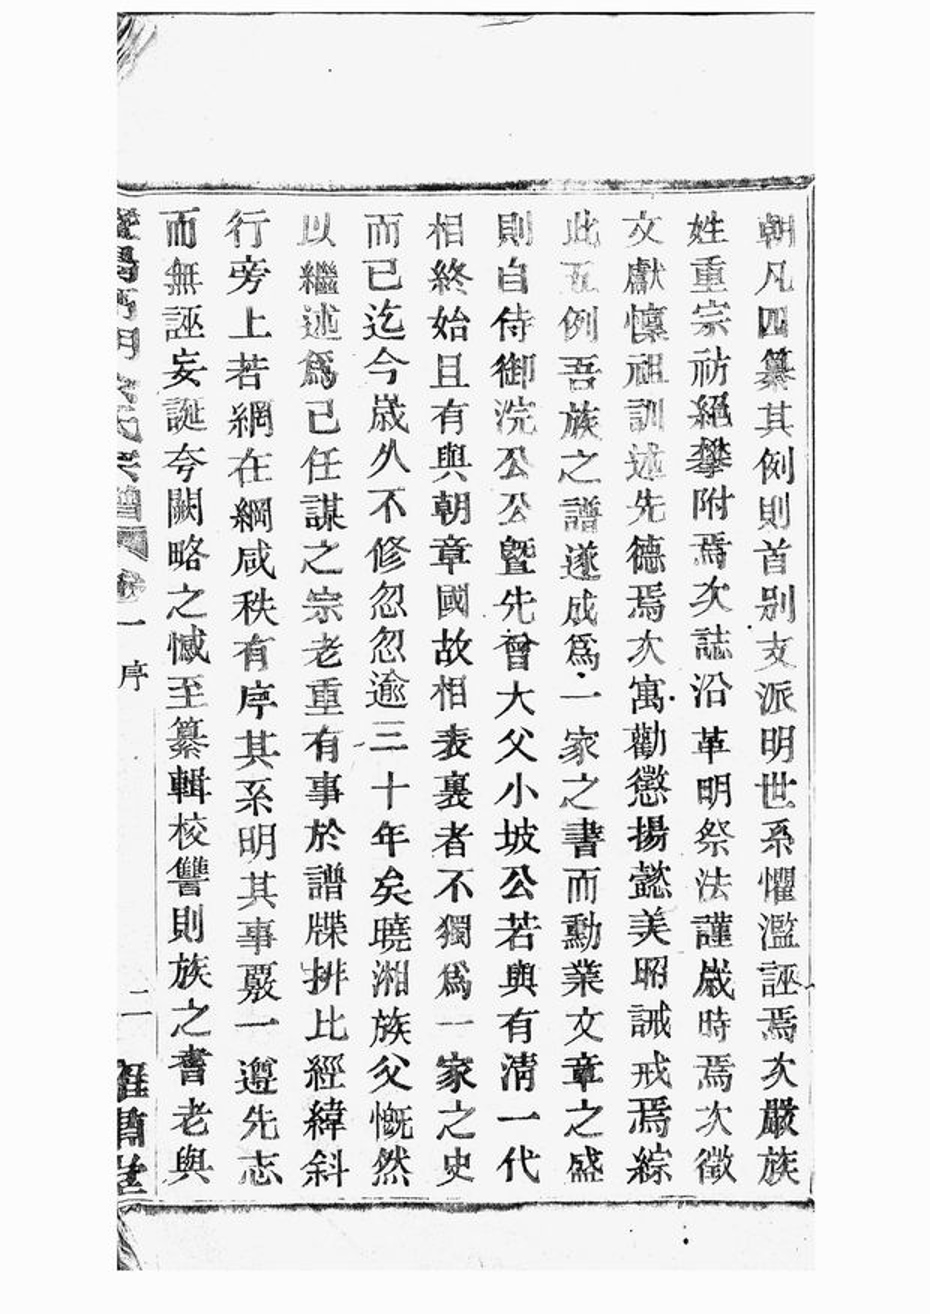 朝凡四纂其例則首別支派明世系懼濫誣焉次嚴族
姓重宗祊絕攀附焉次誌沿革明祭法謹歲時焉次徵
文獻懷祖訓述先德焉次寓勸懲揚懿美昭誡戒焉綜
此五例吾族之譜遂成爲一家之書而勳業文章之盛
則自侍御浣公公曁先曾大父小坡公若與有淸一代
相終始且有與朝章國故相表裏者不獨爲一家之史
而已迄今歲久不修忽忽逾三十年矣曉湘族父慨然
以繼述爲己任謀之宗老重有事於譜牒排比經緯斜
行旁上若網在綱咸秩有序其系明其事覈一遵先志
而無誣妄誕夸闕略之憾至纂輯校讐則族之耆老與
氏宗譜 卷一 序 二